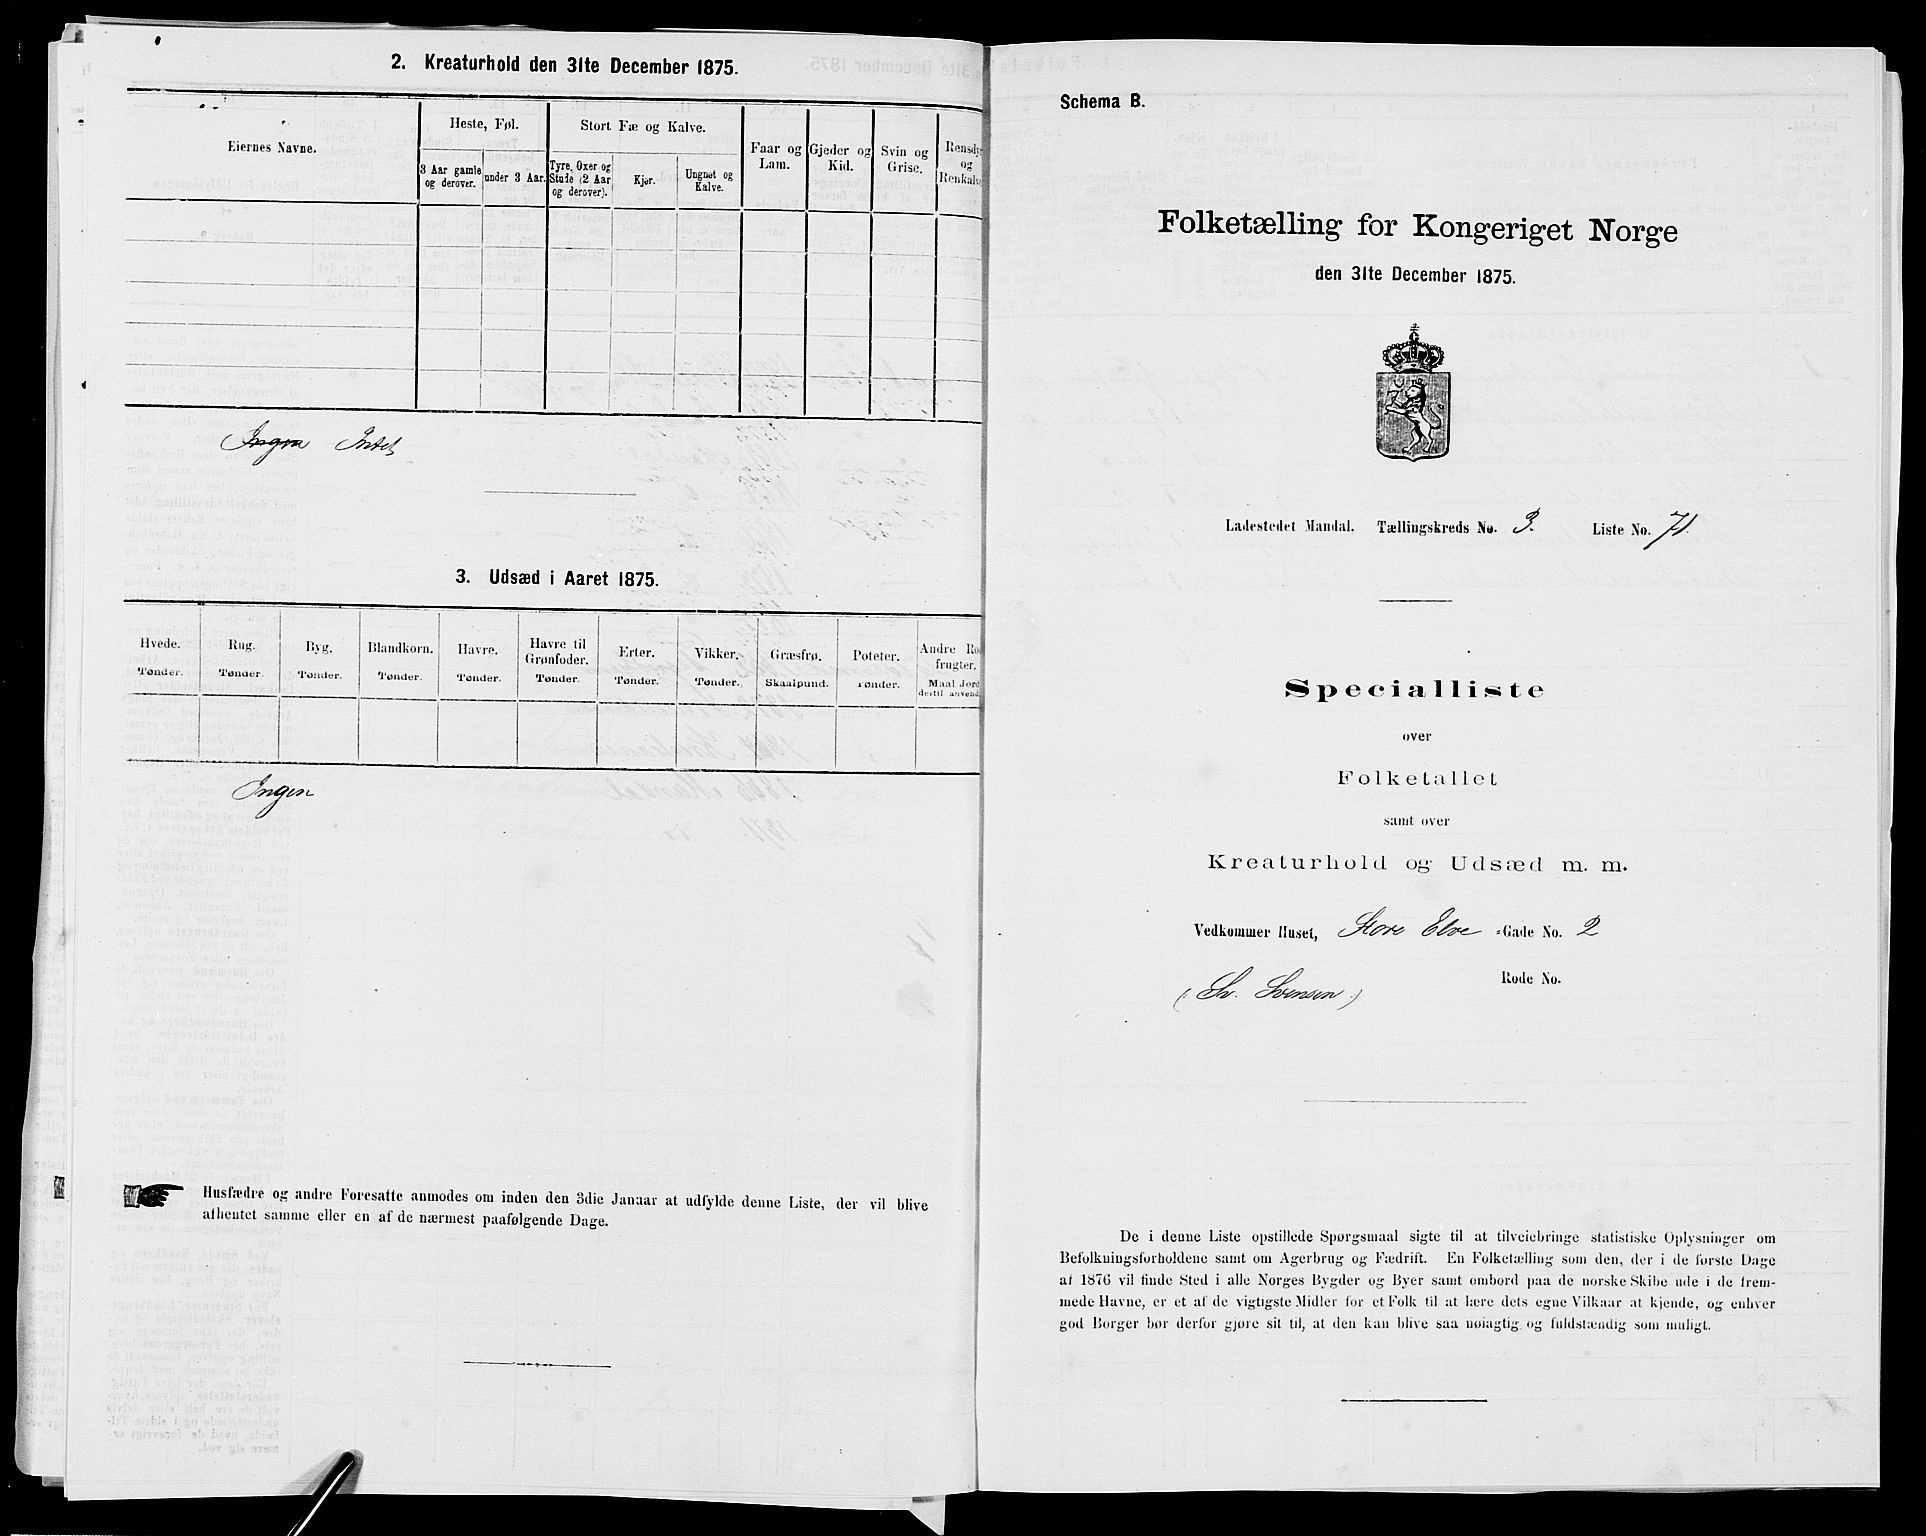 2. Kreaturhold den 31te December 1875.
Eiernes Navne.
Heste, Føl.
3 Aar gamle og derover.
under 3 Aar.
Stort Fæ og Kalve.
Tyre, Oxer og Stude (2 Aar og derover).
Kjør.
Ungnøt og Kalve.
Faar og Lam.
Gjeder og Kid.
Svin og Grise.
Rensdy
og
Renkalve
Ingen Intet
3. Udsæd i Aaret 1875.
Hvede. Tønder.
Rug. Tønder.
Byg. Tønder.
Blandkorn. Tønder.
Havre. Tønder.
Havre til Grønfoder. Tønder.
Erter. Tønder.
Vikker. Tønder.
Græsfrø. Skaalpund.
Poteter. Tønder.
Andre Ro
frugter.
Maal Jord
dertil anvend
Ingen
Husfædre og andre Foresatte anmodes om inden den 3die Januar at udfylde denne Liste, der vil blive
afhentet samme eller en af de nærmest paafølgende Dage.
Schema B.
Folketælling for Kongeriget Norge
den 31te December 1875.
Ladestedet Mandal. Tællingskreds No. 3. Liste No. 71.
Specialliste
over
Folketallet
samt over
Kreaturhold og Udsæd m. m.
Vedkommer Huset, Store Elve -Gade No. 2
Rode No.
(: Sv. Svensen :)
De i denne Liste opstillede Spørgsmaal sigte til at tilveiebringe statistiske Oplysninger om
Befolkningsforholdene samt om Agerbrug og Fædrift. En Folketælling som den, der i de første Dage
af 1876 vil finde Sted i alle Norges Bygder og Byer samt ombord paa de norske Skibe ude i de frem-
mede Havne, er et af de vigtigste Midler for et Folk til at lære dets egne Vilkaar at kjende, og enhver
god Borger bør derfor gjøre sit til, at den kan blive saa nøiagtig og fuldstændig som muligt.